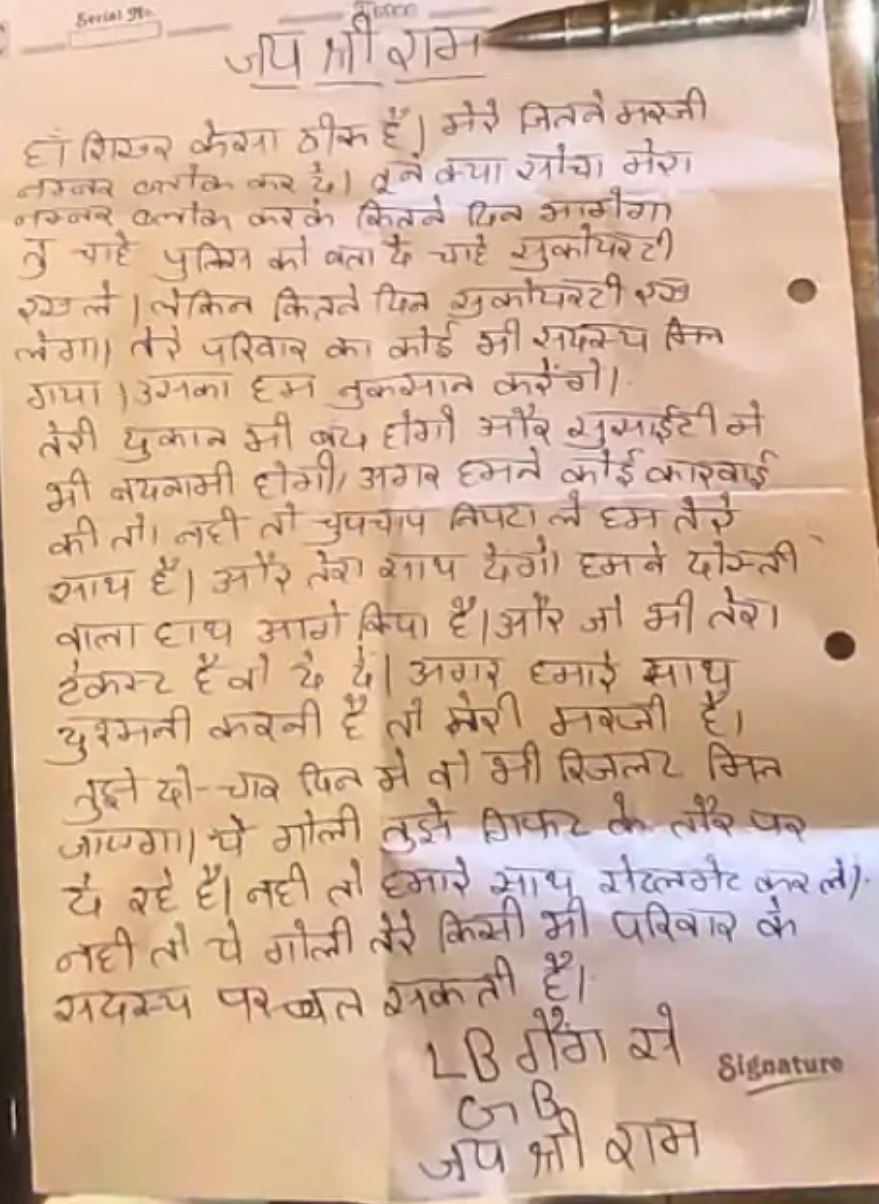 Serial No.
जय श्री राम
हाँ शिखर केसा ठीक है। मेरे जितने मरजी
नम्बर ब्लोक कर दे। तूने क्या सोचा मेरा
नम्बर ब्लोक करके कितने दिन भागेगा
तु चाहे पुलिस को बता दे चाहे सुकोयरटी
रख ले। लेकिन कितने दिन सुकोयरटी रख
लेगा। तेरे परिवार का कोई भी सदस्य मिल
गया। उसका हम नुकसान करेंगे।
तेरी दुकान भी बंद होगी और सुसाईटी मे
भी बदनामी होगी। अगर हमने कोई कारवाई
की तो। नही तो चुपचाप निपटा ले हम तेरे
साथ है। और तेरा साथ देगे। हमने दोस्ती
वाला हाथ आगे किया है। और जो भी तेरा
टेकस्ट है वो दे दे। अगर हमारे साथ
दुश्मनी करनी है तो तेरी मरजी है।
तुझे दो-चार दिन मे वो भी रिजलट मिल
जाएगा। ये गोली तुझे गिफट के तौर पर
दे रहे है। नही तो हमारे साथ सेटलमेट कर ले।
नही तो ये गोली तेरे किसी भी परिवार के
सदस्य पर चल सकती है।
LB गैंग से
Signature
GB
जय श्री राम